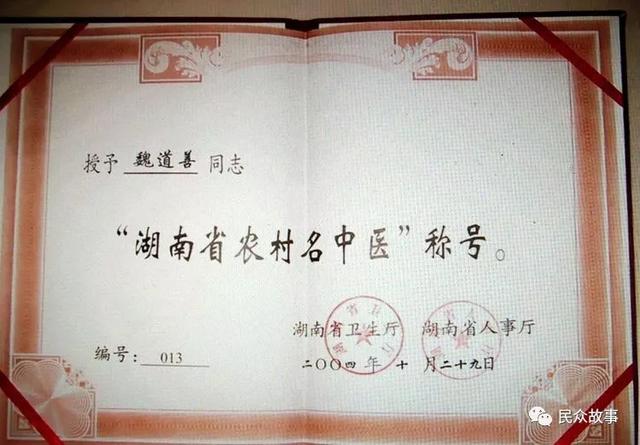 授予 魏道善 同志
“湖南省农村名中医”称号。
湖南省卫生厅 湖南省人事厅
编号: 013
二〇〇四 年 十 月二十九日
民众故事